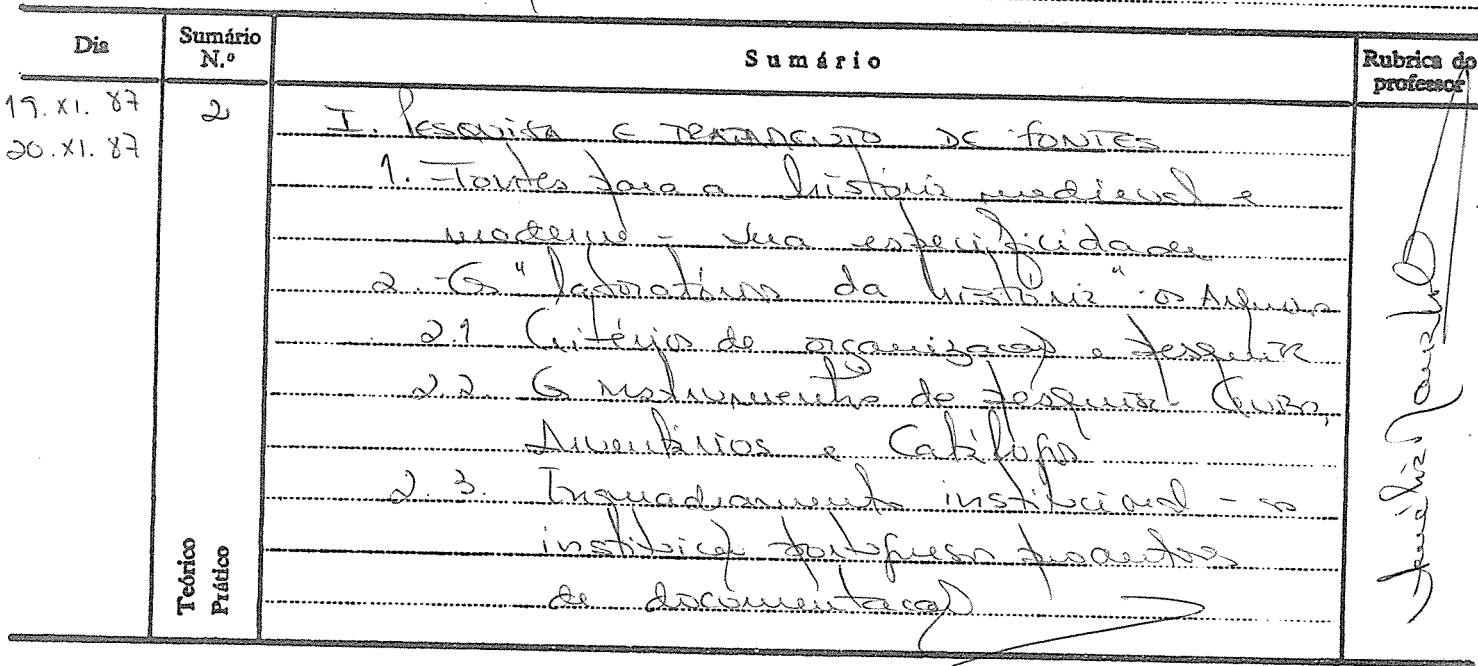 Dia
Sumário N.º
Sumário
Rubrica do professor
19. XI. 87
20. XI. 87
2
I. PESQUISA E TRATAMENTO DE FONTES
1. Fontes para a história medieval e
moderna - sua especificidade
2. Os "laboratórios da história" os Arquivos
2.1 Critérios de organização e pesquisa
2.2. Os instrumentos de pesquisa - Guias,
Inventários e Catálogos
2.3. Enquadramento institucional - as
instituições portuguesas produtoras
de documentação
Teórico
Prático